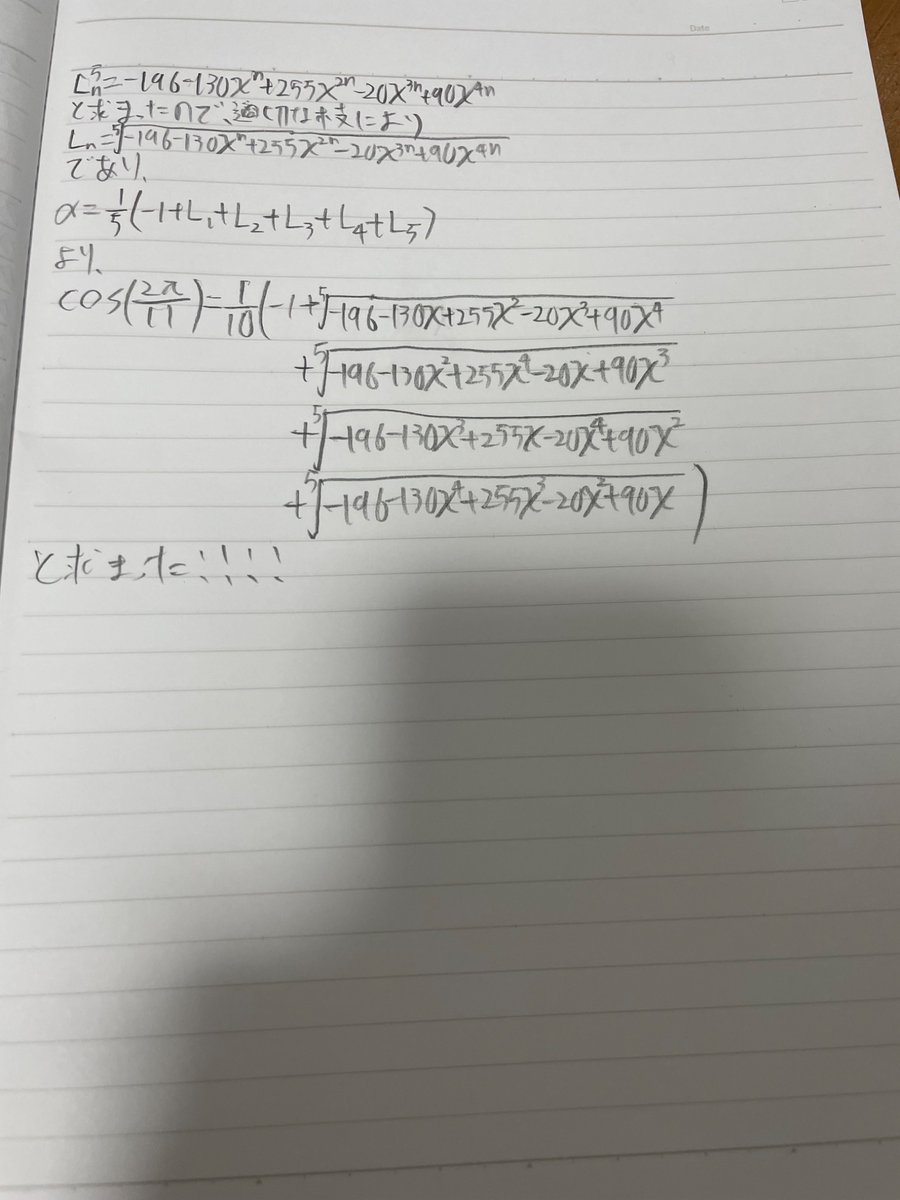 Date
L_n^5=-196-130x^n+255x^{2n}-20x^{3n}+90x^{4n}
と求まったので、適切な枝により
L_n=\sqrt[5]{-196-130x^n+255x^{2n}-20x^{3n}+90x^{4n}}
であり、
α=\frac{1}{5}(-1+L_1+L_2+L_3+L_4+L_5)
より、
cos(\frac{2π}{11})=\frac{1}{10}(-1+\sqrt[5]{-196-130x+255x^2-20x^3+90x^4}
+\sqrt[5]{-196-130x^2+255x^4-20x+90x^3}
+\sqrt[5]{-196-130x^3+255x-20x^4+90x^2}
+\sqrt[5]{-196-130x^4+255x^3-20x^2+90x})
と求まった!!!!